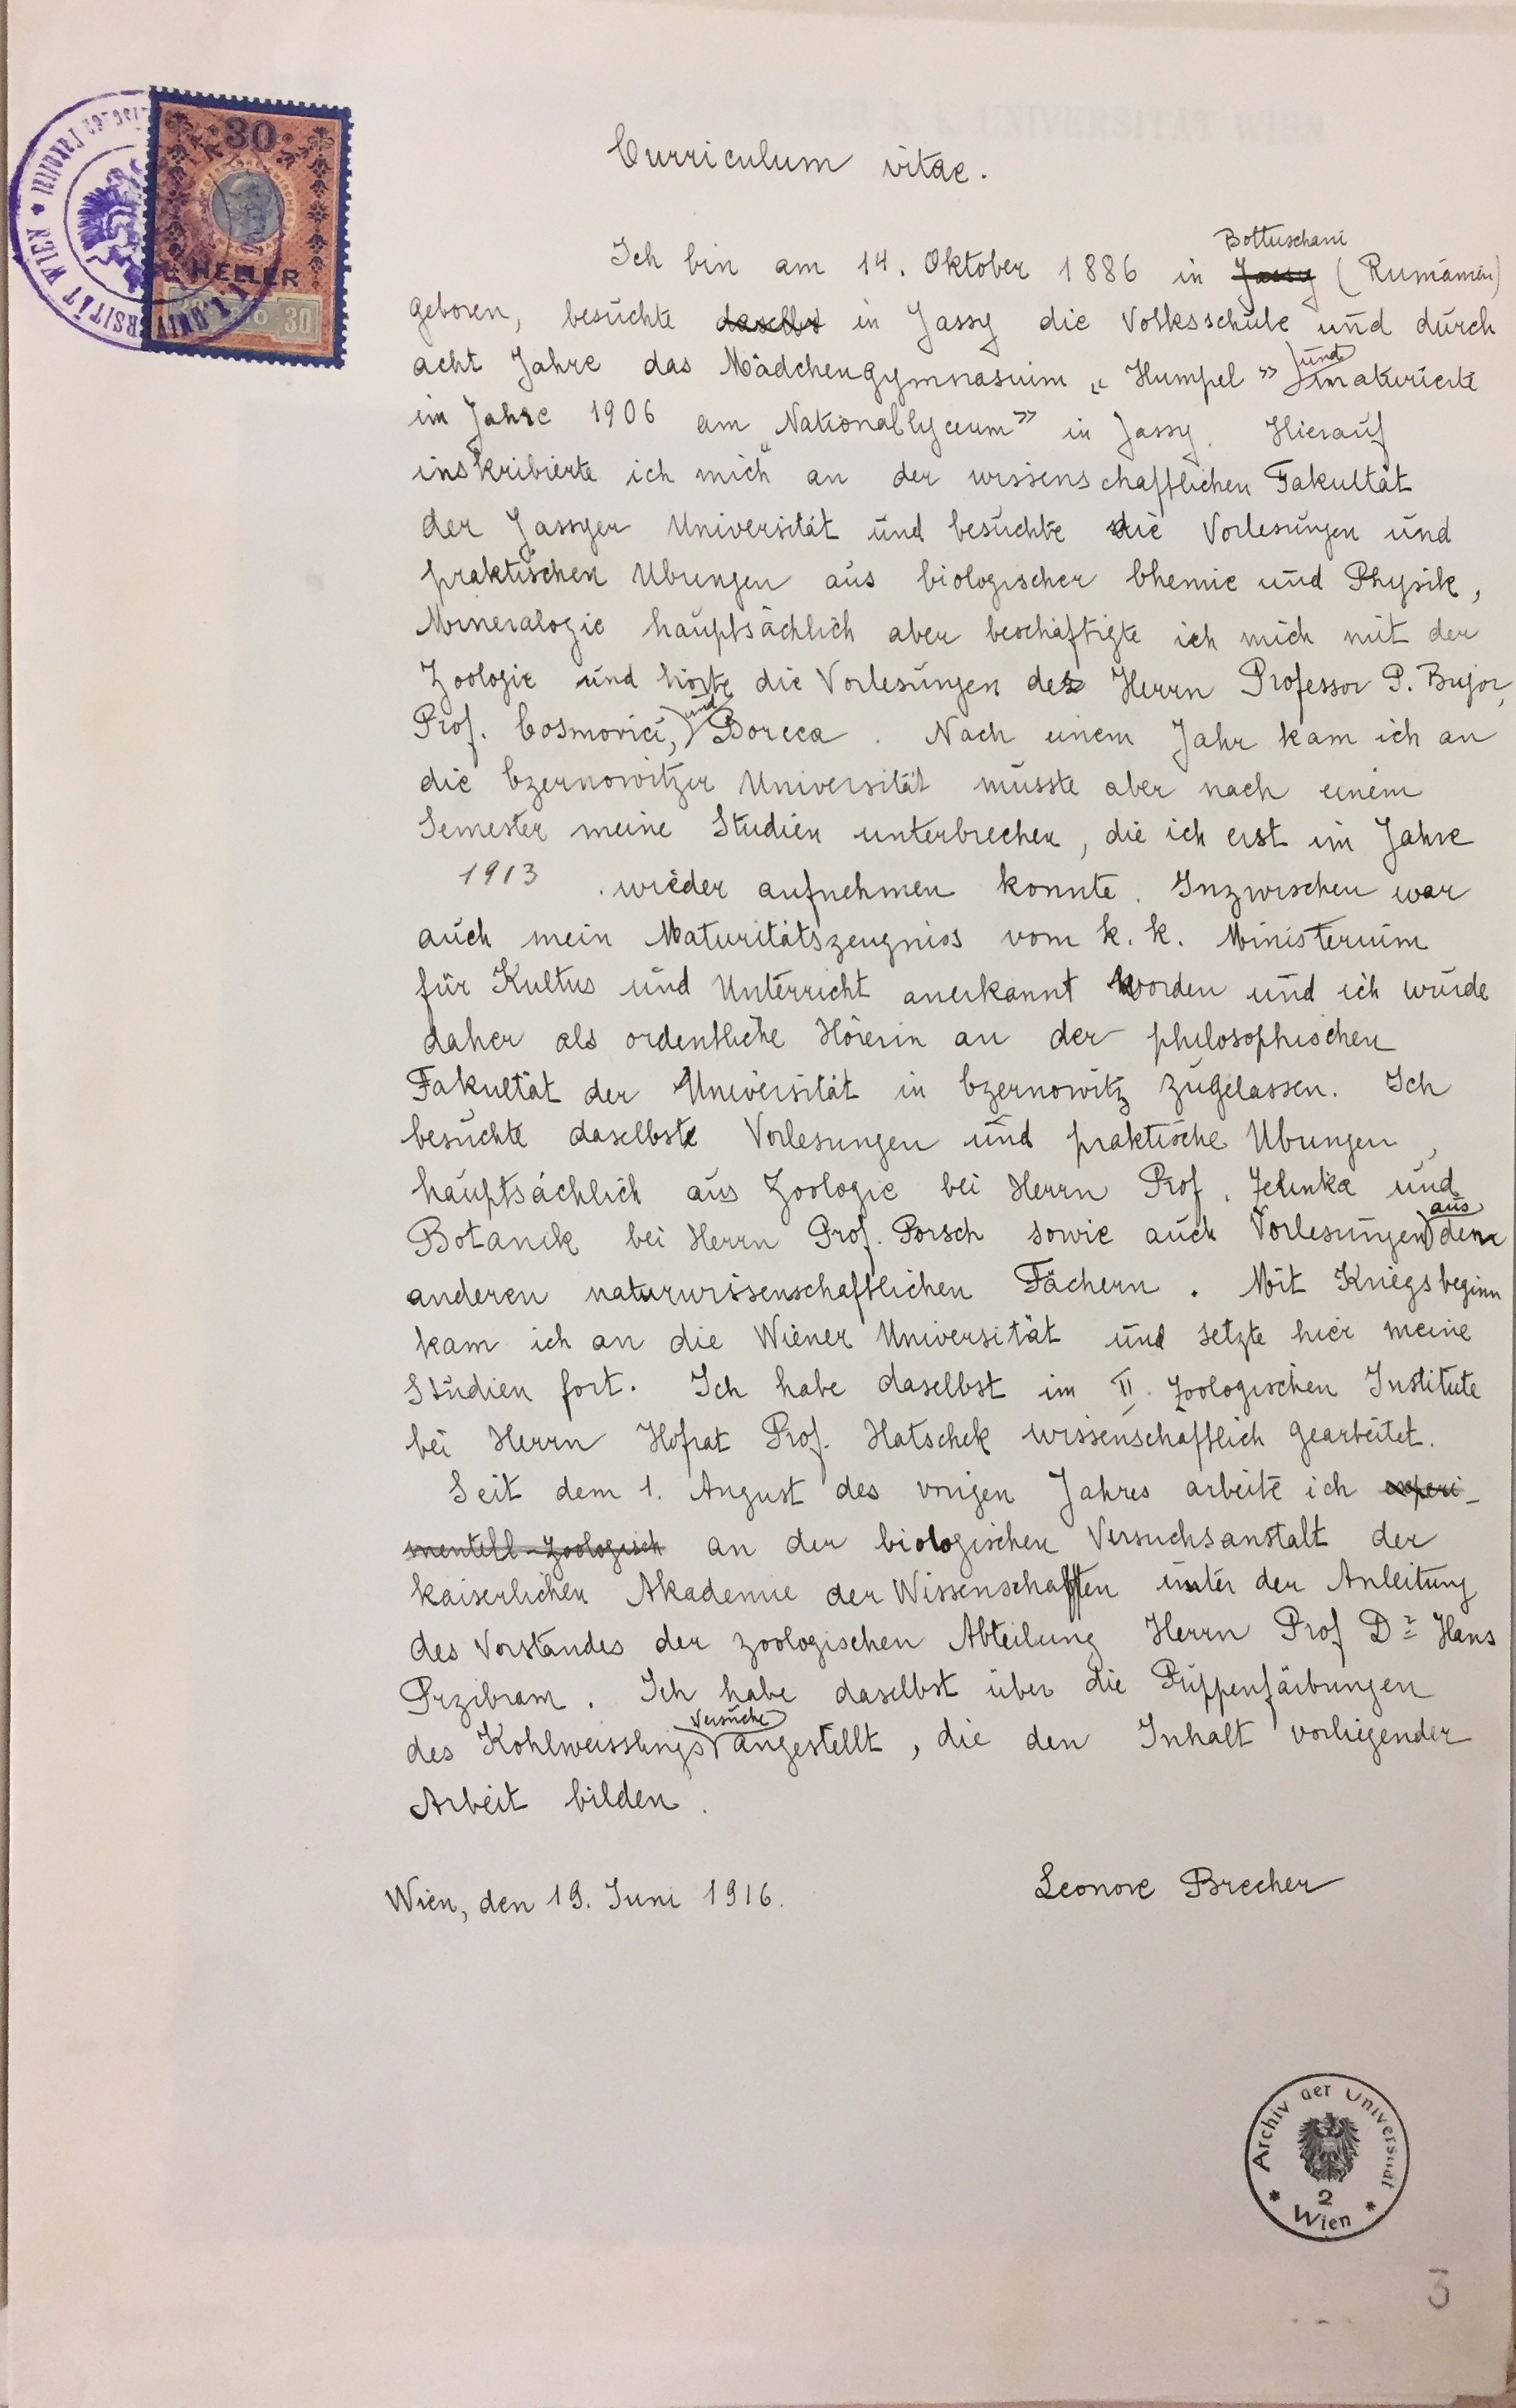 Curriculum vitae.
Bottuschani
Ich bin am 14. Oktober 1886 in Jassy (Rumänien)
geboren, besuchte daselbst in Jassy die Volksschule und durch
acht Jahre das Mädchengymnasium „Humpel” und maturierte
im Jahre 1906 am „Nationallyceum” in Jassy. Hierauf
inskribierte ich mich an der wissenschaftlichen Fakultät
der Jassyer Universität und besuchte die Vorlesungen und
praktischen Übungen aus biologischer Chemie und Physik,
Mineralogie hauptsächlich aber beschäftigte ich mich mit der
Zoologie und hörte die Vorlesungen des Herrn Professor P. Bujor,
Prof. Cosmovici, und Borcea. Nach einem Jahr kam ich an
die Czernowitzer Universität musste aber nach einem
Semester meine Studien unterbrechen, die ich erst im Jahre
1913 wieder aufnehmen konnte. Inzwischen war
auch mein Maturitätszeugniss vom k. k. Ministerium
für Kultus und Unterricht anerkannt worden und ich wurde
daher als ordentliche Hörerin an der philosophischen
Fakultät der Universität in Czernowitz zugelassen. Ich
besuchte daselbst Vorlesungen und praktische Übungen,
hauptsächlich aus Zoologie bei Herrn Prof. Zelinka und
Botanik bei Herrn Prof. Porsch sowie auch Vorlesungen aus den
anderen naturwissenschaftlichen Fächern. Mit Kriegsbeginn
kam ich an die Wiener Universität und setzte hier meine
Studien fort. Ich habe daselbst im II. zoologischen Institute
bei Herrn Hofrat Prof. Hatschek wissenschaftlich gearbeitet.
Seit dem 1. August des vorigen Jahres arbeite ich experi-
mentell-zoologisch an der biologischen Versuchsanstalt der
kaiserlichen Akademie der Wissenschaften unter der Anleitung
des Vorstandes der zoologischen Abteilung Herrn Prof Dr Hans
Przibram. Ich habe daselbst über die Puppenfärbungen
des Kohlweisslings Versuche angestellt, die den Inhalt vorliegender
Arbeit bilden.
Wien, den 19. Juni 1916.
Leonore Brecher
30
HELLER
30
UNIVERSITÄT WIEN
Archiv der Universität
2
Wien
3